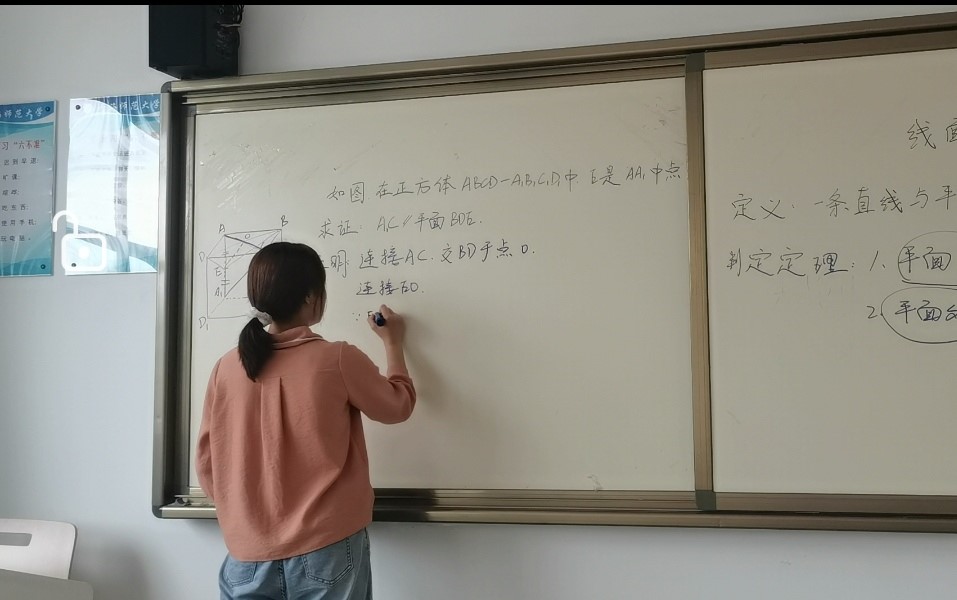 师范大学
习“六不准”
迟到早退;
旷课;
吃东西;
使用手机;
玩电脑。
师范大学
如图 在正方体ABCD-A₁B₁C₁D₁中 E是AA₁中点
求证: A₁C∥平面BDE.
明: 连接AC. 交BD于点O.
连接EO.
∵E
A
B
O
D
E
A₁
D₁
线面
定义: 一条直线与平
判定定理: 1. 平面
2. 平面